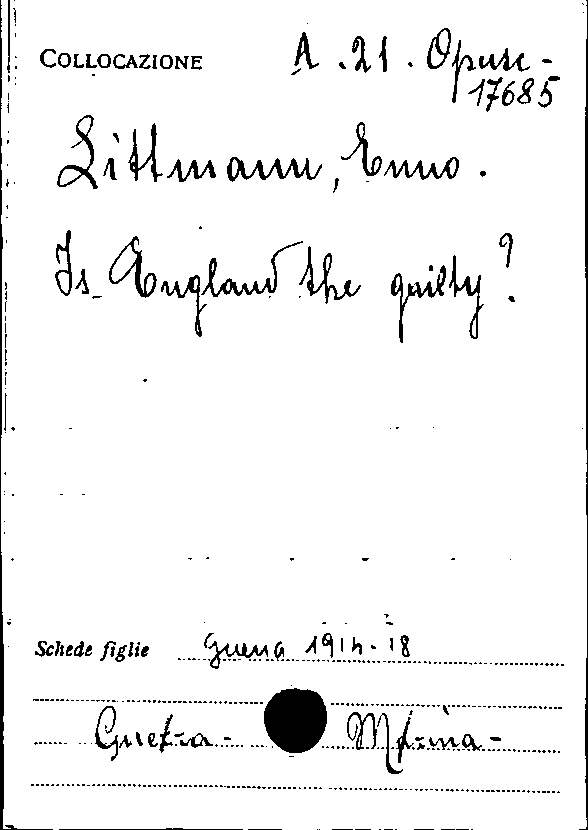 COLLOCAZIONE A. 21. Opusc-
17685
Littmann, Enno.
Is England the guilty?
Schede figlie guerra 1914-18
Guerra-